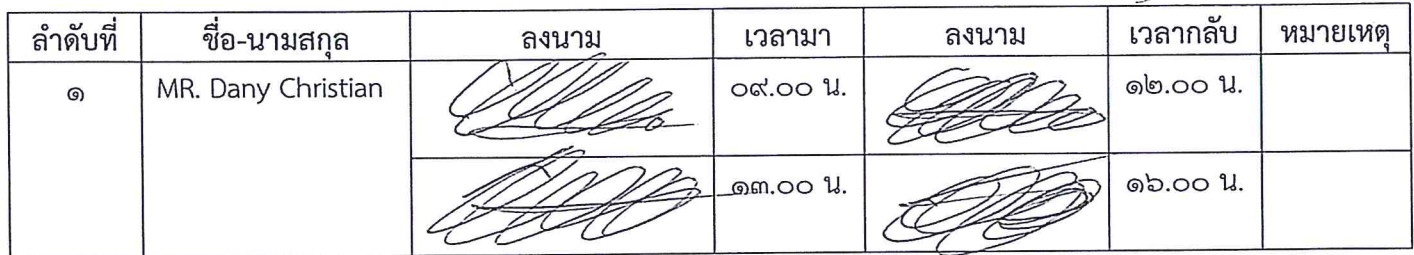 ลำดับที่ ชื่อ-นามสกุล ลงนาม เวลามา ลงนาม เวลากลับ หมายเหตุ
๑ MR. Dany Christian ๐๙.๐๐ น. ๑๒.๐๐ น.
๑๓.๐๐ น. ๑๖.๐๐ น.